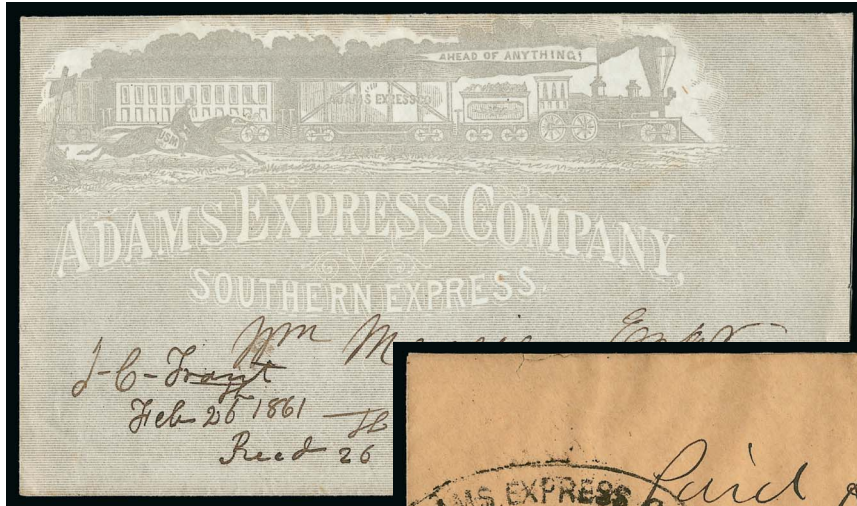 AHEAD OF ANYTHING!
ADAMS EXPRESS CO
USM
ADAMS EXPRESS COMPANY,
SOUTHERN EXPRESS.
Wm
J-C-
Feb 26 1861
Recd 26
AMS EXPRESS
Paid